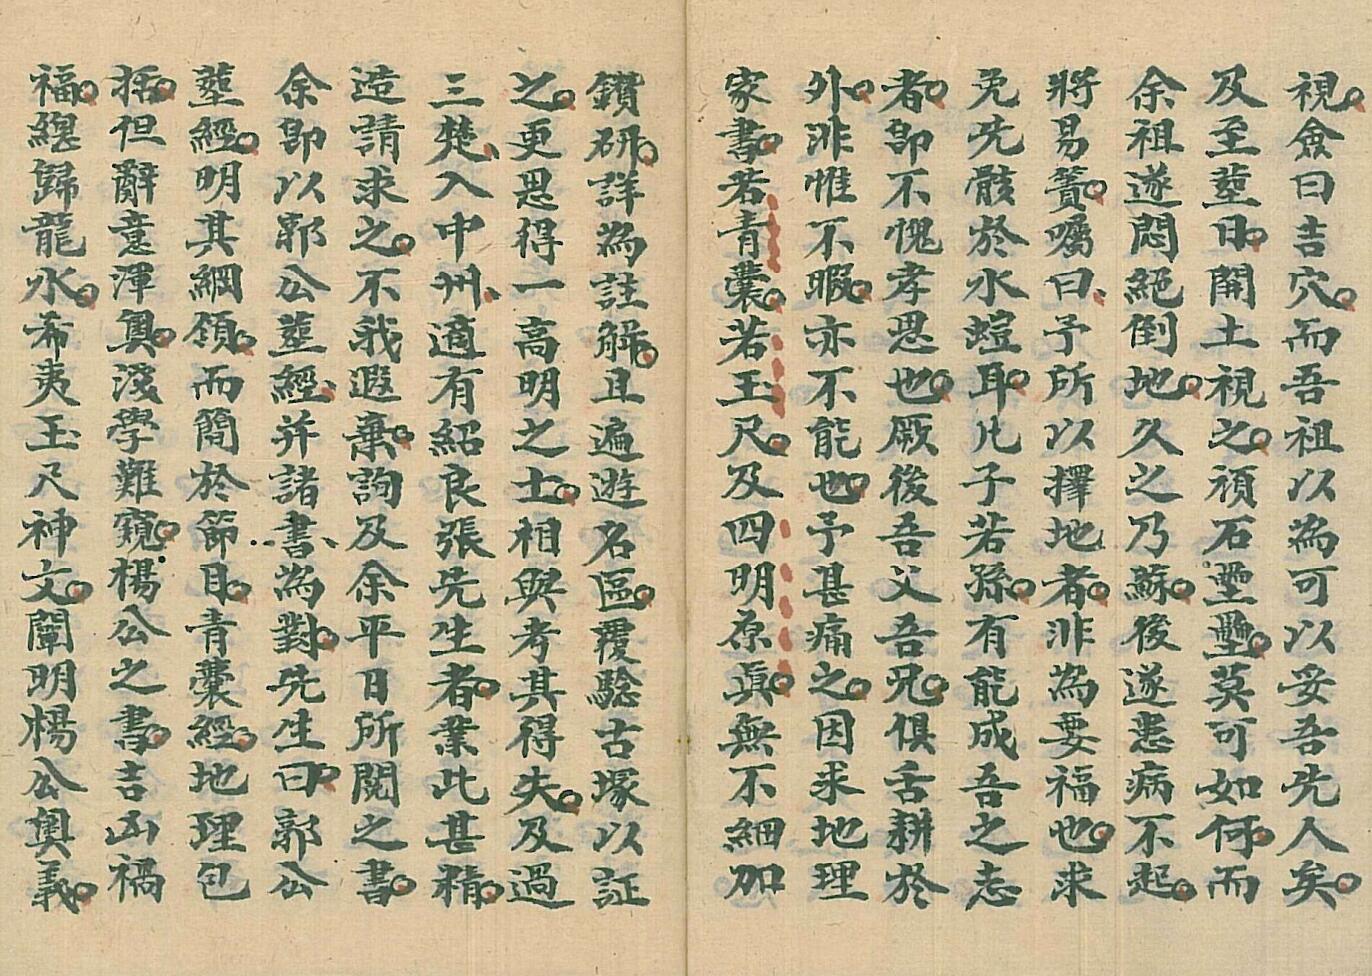 視僉曰吉穴而吾祖以為可以妥吾先人矣
及至塟日開土視之頑石壘壘莫可如何而
余祖遂悶絕倒地久之乃蘇後遂患病不起
將易簀囑曰予所以擇地者非為要福也求
免先骸於水螘耳凢子若孫有能成吾之志
者即不愧孝思也厥後吾父吾兄俱舌耕於
外非惟不暇亦不能也予甚痛之因求地理
家書若青囊若玉尺及四明原眞無不細加
鑽研詳為註解且遍遊名區覆騐古塚以証
之更思得一高明之士相與考其得失及過
三楚入中州適有紹良張先生者業此甚精
造請求之不我遐棄詢及余平日所閱之書
余即以郭公塟經并諸書為對先生曰郭公
塟經明其綱領而簡於節目青囊經地理包
括但辭意渾奧淺學難窺楊公之書吉凶禍
福總歸龍水希夷玉尺神文闡明楊公奧義